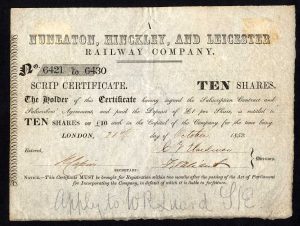 NUNEATON, HINCKLEY, AND LEICESTER
RAILWAY COMPANY.
No. 6421 to 6430
SCRIP CERTIFICATE. TEN SHARES.
The Holder of this Certificate having signed the Subscription Contract and
Subscribers' Agreement, and paid the Deposit of £1 per Share, is entitled to
TEN SHARES of £10 each in the Capital of the Company for the time being.
LONDON, 21st day of October 1859.
Entered,
SECRETARY.
Directors.
NOTICE.—This Certificate MUST be brought for Registration within two months after the passing of the Act of Parliament
for Incorporating the Company, in default of which it is liable to forfeiture.
Apply to